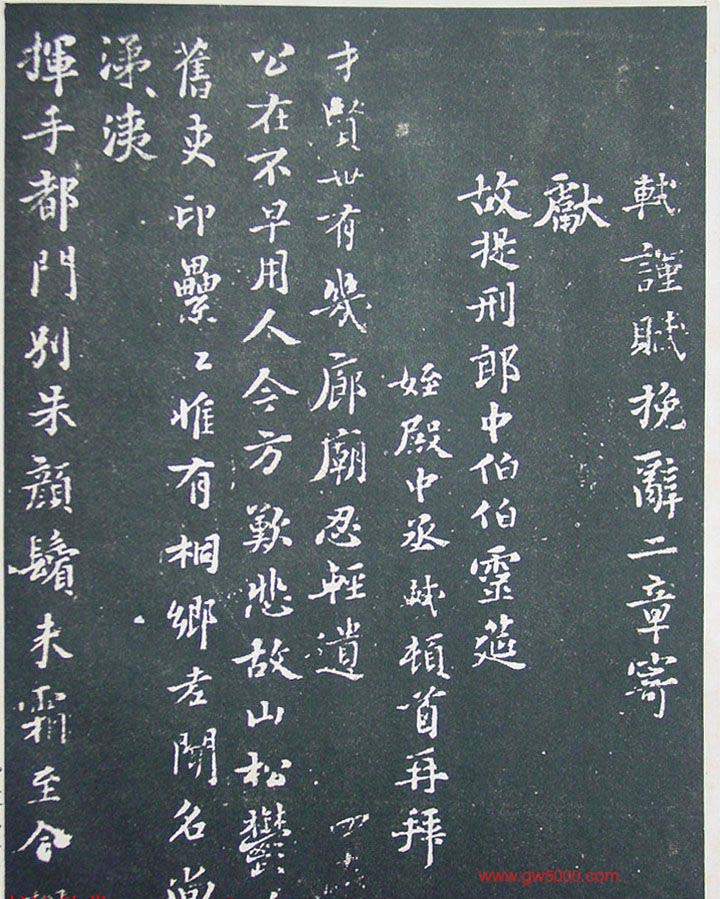 軾謹賦挽辭二章寄
獻
故提刑郎中伯伯靈筵
姪殿中丞軾頓首再拜
才賢世有幾廊廟忍輕遺
公在不早用人今方歎悲故山松鬱
舊吏印纍々惟有桐鄉老聞名尚
涕洟
揮手都門別朱顏鬢未霜至今
www.gw5000.com